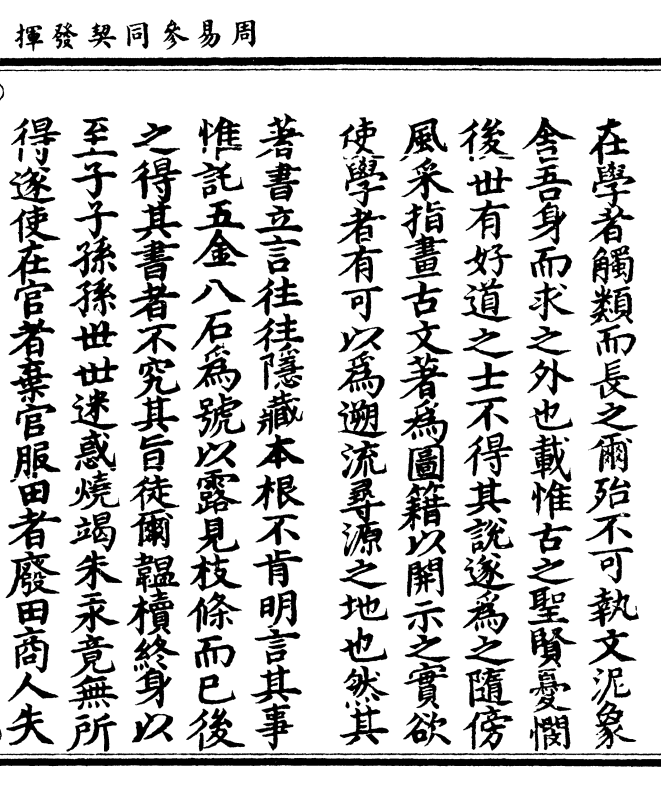 周易參同契發揮
在學者觸類而長之爾殆不可執文泥象
舍吾身而求之外也載惟古之聖賢憂憫
後世有好道之士不得其說遂爲之隨傍
風采指畫古文著爲圖籍以開示之實欲
使學者有可以爲遡流尋源之地也然其
著書立言往往隱藏本根不肯明言其事
惟託五金八石爲號以露見枝條而已後
之得其書者不究其旨徒爾韞櫝終身以
至子子孫孫世世迷惑燒竭朱汞竟無所
得遂使在官者棄官服田者廢田商人失